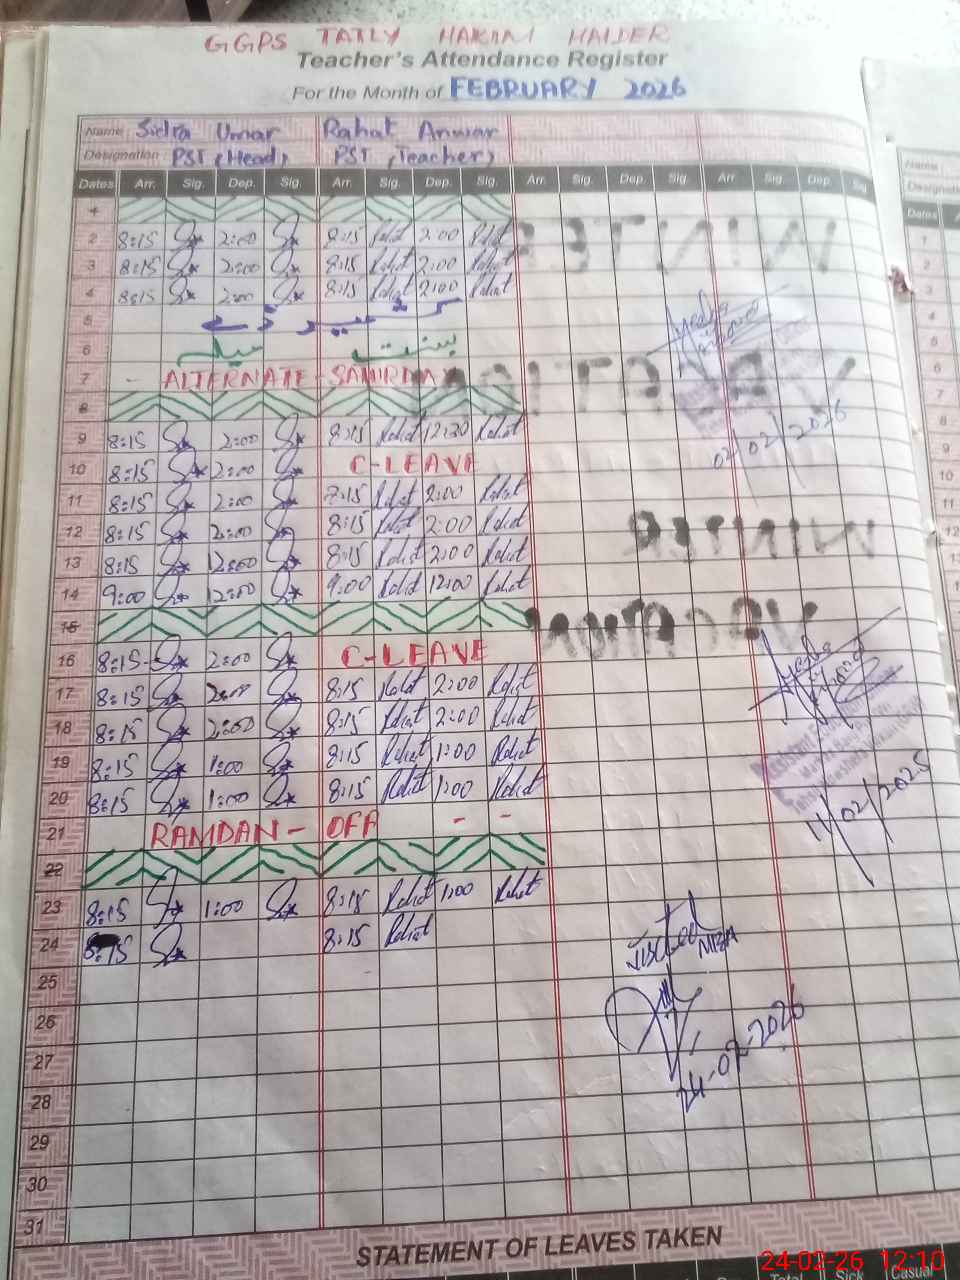 GGPS TATLY HAKIM HAIDER
Teacher's Attendance Register
For the Month of FEBRUARY 2026
Name Sidra Umar Rahat Anwar
Designation PST (Head) PST (Teacher)
Dates Arr. Sig. Dep. Sig. Arr. Sig. Dep. Sig. Arr. Sig. Dep. Sig. Arr. Sig. Dep. Sig
1
2 8:15 2:00 8:15 Rahat 2:00 Rahat
3 8:15 2:00 8:15 Rahat 2:00 Rahat
4 8:15 2:00 8:15 Rahat 2:00 Rahat
5 کشمیر ڈے
6 بسنت میلہ
7 - ALTERNATE - SAMIRDAY
8
9 8:15 2:00 8:15 Rahat 12:30 Rahat
10 8:15 2:00 C-LEAVE
11 8:15 2:00 8:15 Rahat 2:00 Rahat
12 8:15 2:00 8:15 Rahat 2:00 Rahat
13 8:15 12:00 8:15 Rahat 2:00 Rahat
14 9:00 12:00 9:00 Rahat 12:00 Rahat
15
16 8:15 2:00 C-LEAVE
17 8:15 2:00 8:15 Rahat 2:00 Rahat
18 8:15 2:00 8:15 Rahat 2:00 Rahat
19 8:15 1:00 8:15 Rahat 1:00 Rahat
20 8:15 1:00 8:15 Rahat 1:00 Rahat
21 RAMDAN - OFF - -
22
23 8:15 1:00 8:15 Rahat 1:00 Rahat
24 8:15 8:15 Rahat
25
26
27
28
29
30
31
WINTER
VACATION
02/02/2026
WINTER
VACATION
11/02/2025
Visited
24-02-2026
STATEMENT OF LEAVES TAKEN
Total Sick Casual
Name
Designation
Dates
1
2
3
4
5
6
7
8
9
10
11
12
13
14
24-02-26 12:10